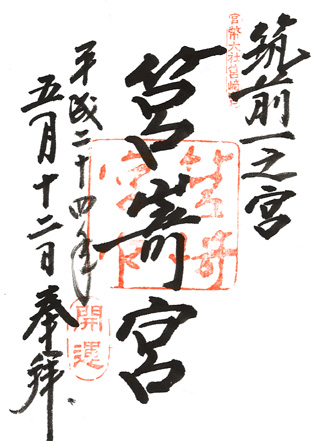 筑前一之宮
官幣大社筥崎宮
筥崎宮
平成二十四年
五月十二日 奉拝
開運